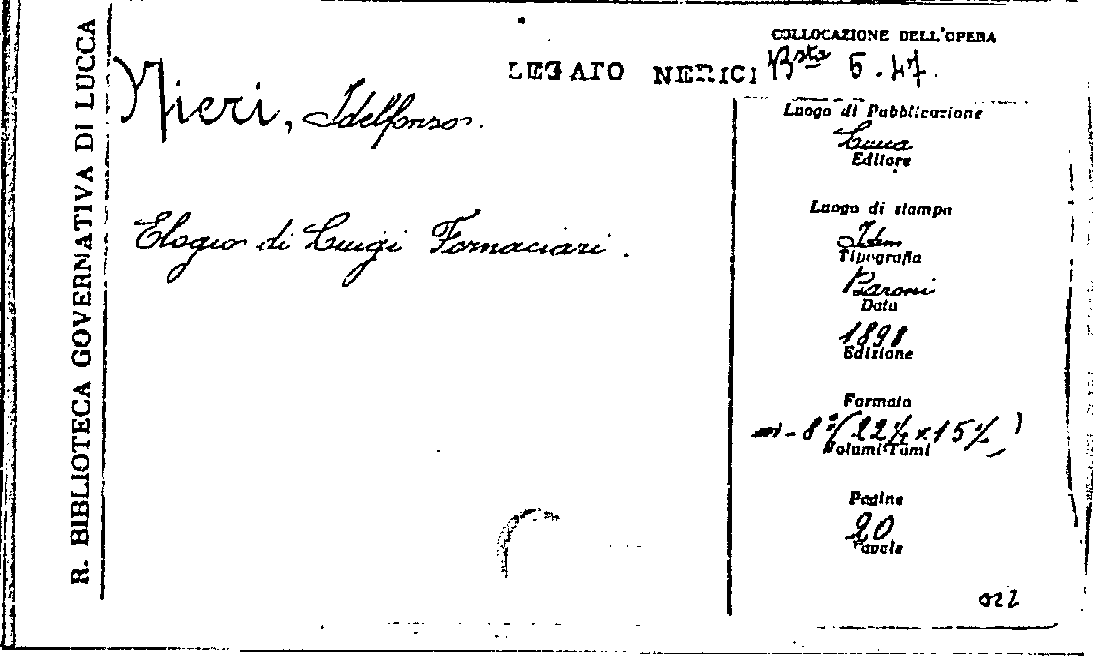 R. BIBLIOTECA GOVERNATIVA DI LUCCA
COLLOCAZIONE DELL'OPERA
LEGATO NERICI Bsta 5.47.
Nieri, Idelfonso.
Elogio di Luigi Fornaciari.
Luogo di Pubblicazione
Lucca
Editore
Luogo di stampa
Idem
Tipografia
Baroni
Data
1898
Edizione
Formato
in-8º (22½ x 15½)
Volumi Tomi
Pagine
20
Tavole
022